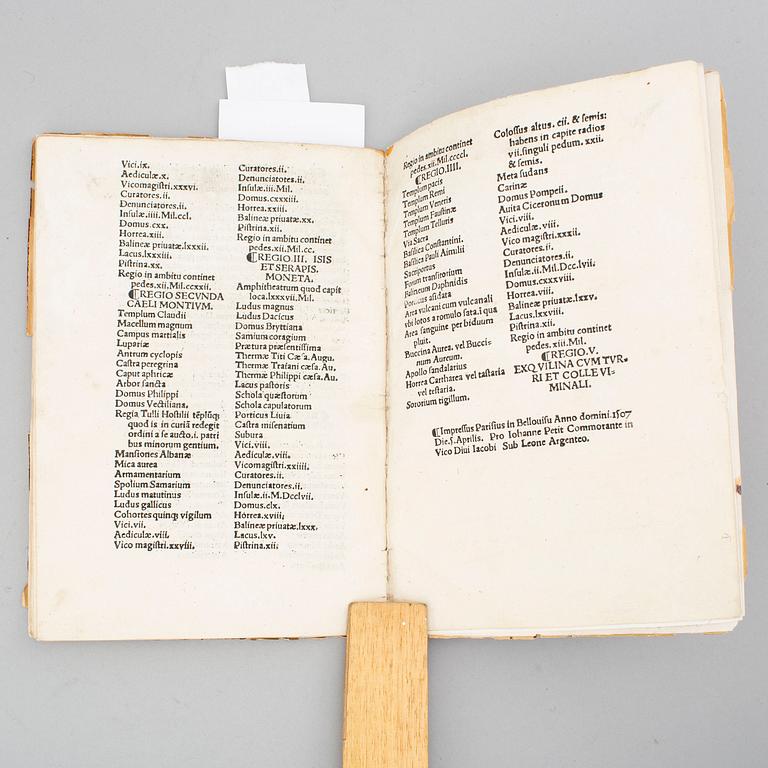 Vici.ix.
Aediculæ.x.
Vicomagistri.xxxvi.
Curatores.ii.
Denunciatores.ii.
Insulæ.iiii.Mil.ccl.
Domus.cxx.
Horrea.xxiii.
Balineæ priuatæ.lxxxii.
Lacus.lxxxiii.
Pistrina.xx.
Regio in ambitu continet
pedes.xii.Mil.ccxxii.
⸿REGIO SECVNDA
CAELI MONTIVM.
Templum Claudii
Macellum magnum
Campus martialis
Lupariæ
Antrum cyclopis
Castra peregrina
Caput aphricæ
Arbor sancta
Domus Philippi
Domus Vectiliana.
Regia Tulli Hostilii tēplūq;
quod is in curiā redegit
ordini a se aucto.i. patri
bus minorum gentium.
Mansiones Albanæ
Mica aurea
Armamentarium
Spolium Samarium
Ludus matutinus
Ludus gallicus
Cohortes quinq; vigilum
Vici.vii.
Aediculæ.viii.
Vico magistri.xxviii.
Curatores.ii.
Denunciatores.ii.
Insulæ.iii.Mil.
Domus.cxxxiii.
Horrea.xxiii.
Balineæ priuatæ.xx.
Pistrina.xii.
Regio in ambitu continet
pedes.xii.Mil.cc.
⸿REGIO.III. ISIS
ET SERAPIS.
MONETA.
Amphitheatrum quod capit
loca.lxxxvii.Mil.
Ludus magnus
Ludus Dacicus
Domus Bryttiana
Samium coragium
Prætura præsentissima
Thermæ Titi Cæsa.Augu.
Thermæ Traiani cæsa.Au.
Thermæ Philippi cæsa.Au.
Lacus pastoris
Schola quæstorum
Schola capulatorum
Porticus Liuia
Castra misenatium
Subura
Vici.viii.
Aediculæ.viii.
Vicomagistri.xxiiii.
Curatores.ii.
Denunciatores.ii.
Insulæ.ii.M.Dcclvii.
Domus.clx.
Horrea.xviii;
Balineæ priuatæ.lxxx.
Lacus.lxv.
Pistrina.xii;
Regio in ambitu continet
pedes.xii.Mil.ccccl.
⸿REGIO.IIII.
Templum pacis
Templum Remi
Templum Veneris
Templum Faustinæ
Templum Telluris
Via Sacra
Basilica Constantini.
Basilica Pauli Aimilii
Sacroportus
Forum transitorium
Balineum Daphnidis
Porticus absidata
Area vulcani cum vulcanali
vbi lotos a romulo sata.ī qua
Area sanguine per biduum
pluit.
Buccina Aurea. vel Bucci-
num Aureum.
Apollo sandalarius
Horrea Cartharea vel tastaria
vel testaria.
Sororium tigillum.
Colossus altus. cii. & semis:
habens in capite radios
vii.singuli pedum. xxii.
& semis.
Meta sudans
Carinæ
Domus Pompeii.
Auita Ciceronum Domus
Vici.viii.
Aediculæ. viii.
Vico magistri.xxxii.
Curatores.ii.
Denunciatores.ii.
Insulæ.ii.Mil.Dcc.lvii.
Domus.cxxxviii.
Horrea.viii.
Balineæ priuatæ.lxxv.
Lacus.lxxviii.
Pistrina.xii.
Regio in ambitu continet
pedes.xiii.Mil.
⸿REGIO.V.
EXQVILINA CVM TVR-
RI ET COLLE VI-
MINALI.
⸿Impressus Parisius in Bellouisu Anno domini.1507
Die.5.Aprilis. Pro Iohanne Petit Commorante in
Vico Diui Iacobi Sub Leone Argenteo.